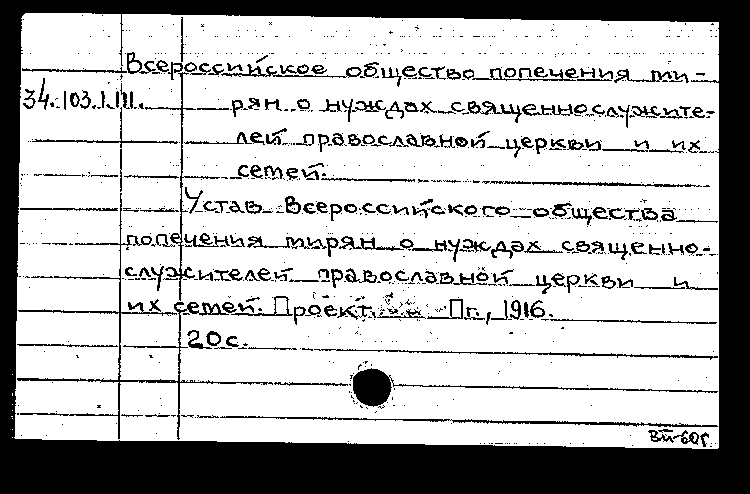 Всероссийское общество попечения ми-
34.103.1.III. рян о нуждах священнослужите-
лей православной церкви и их
семей.
Устав Всероссийского общества
попечения мирян о нуждах священно-
служителей православной церкви и
их семей. Проект. Пг., 1916.
20с.